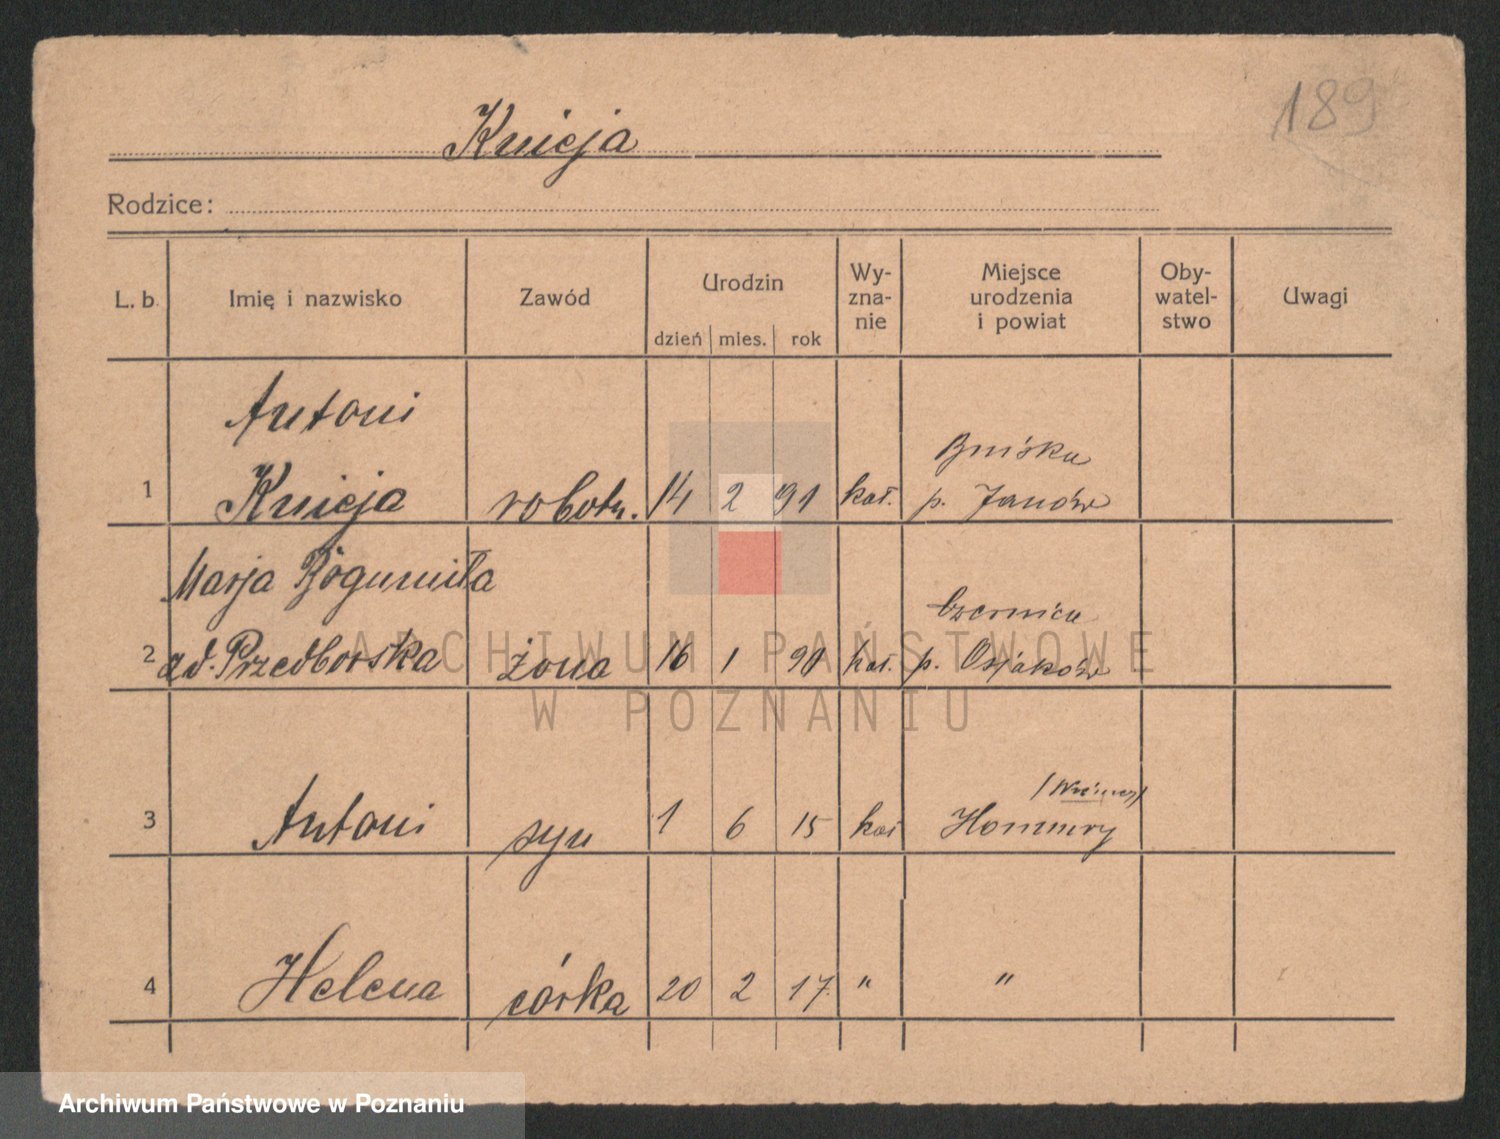 189
Knieja
Rodzice:
L. b. Imię i nazwisko Zawód Urodzin dzień mies. rok Wy-zna-nie Miejsce urodzenia i powiat Oby-watel-stwo Uwagi
Antoni
1 Knieja robotn. 14 2 91 kat. p. Janów
Marja Bogumiła
2 zd. Przedborska żona 16 1 90 kat. p. Osjaków
3 Antoni syn 1 6 15 kat
4 Helena córka 20 2 17. " "
ARCHIWUM PAŃSTWOWE
W POZNANIU
Archiwum Państwowe w Poznaniu